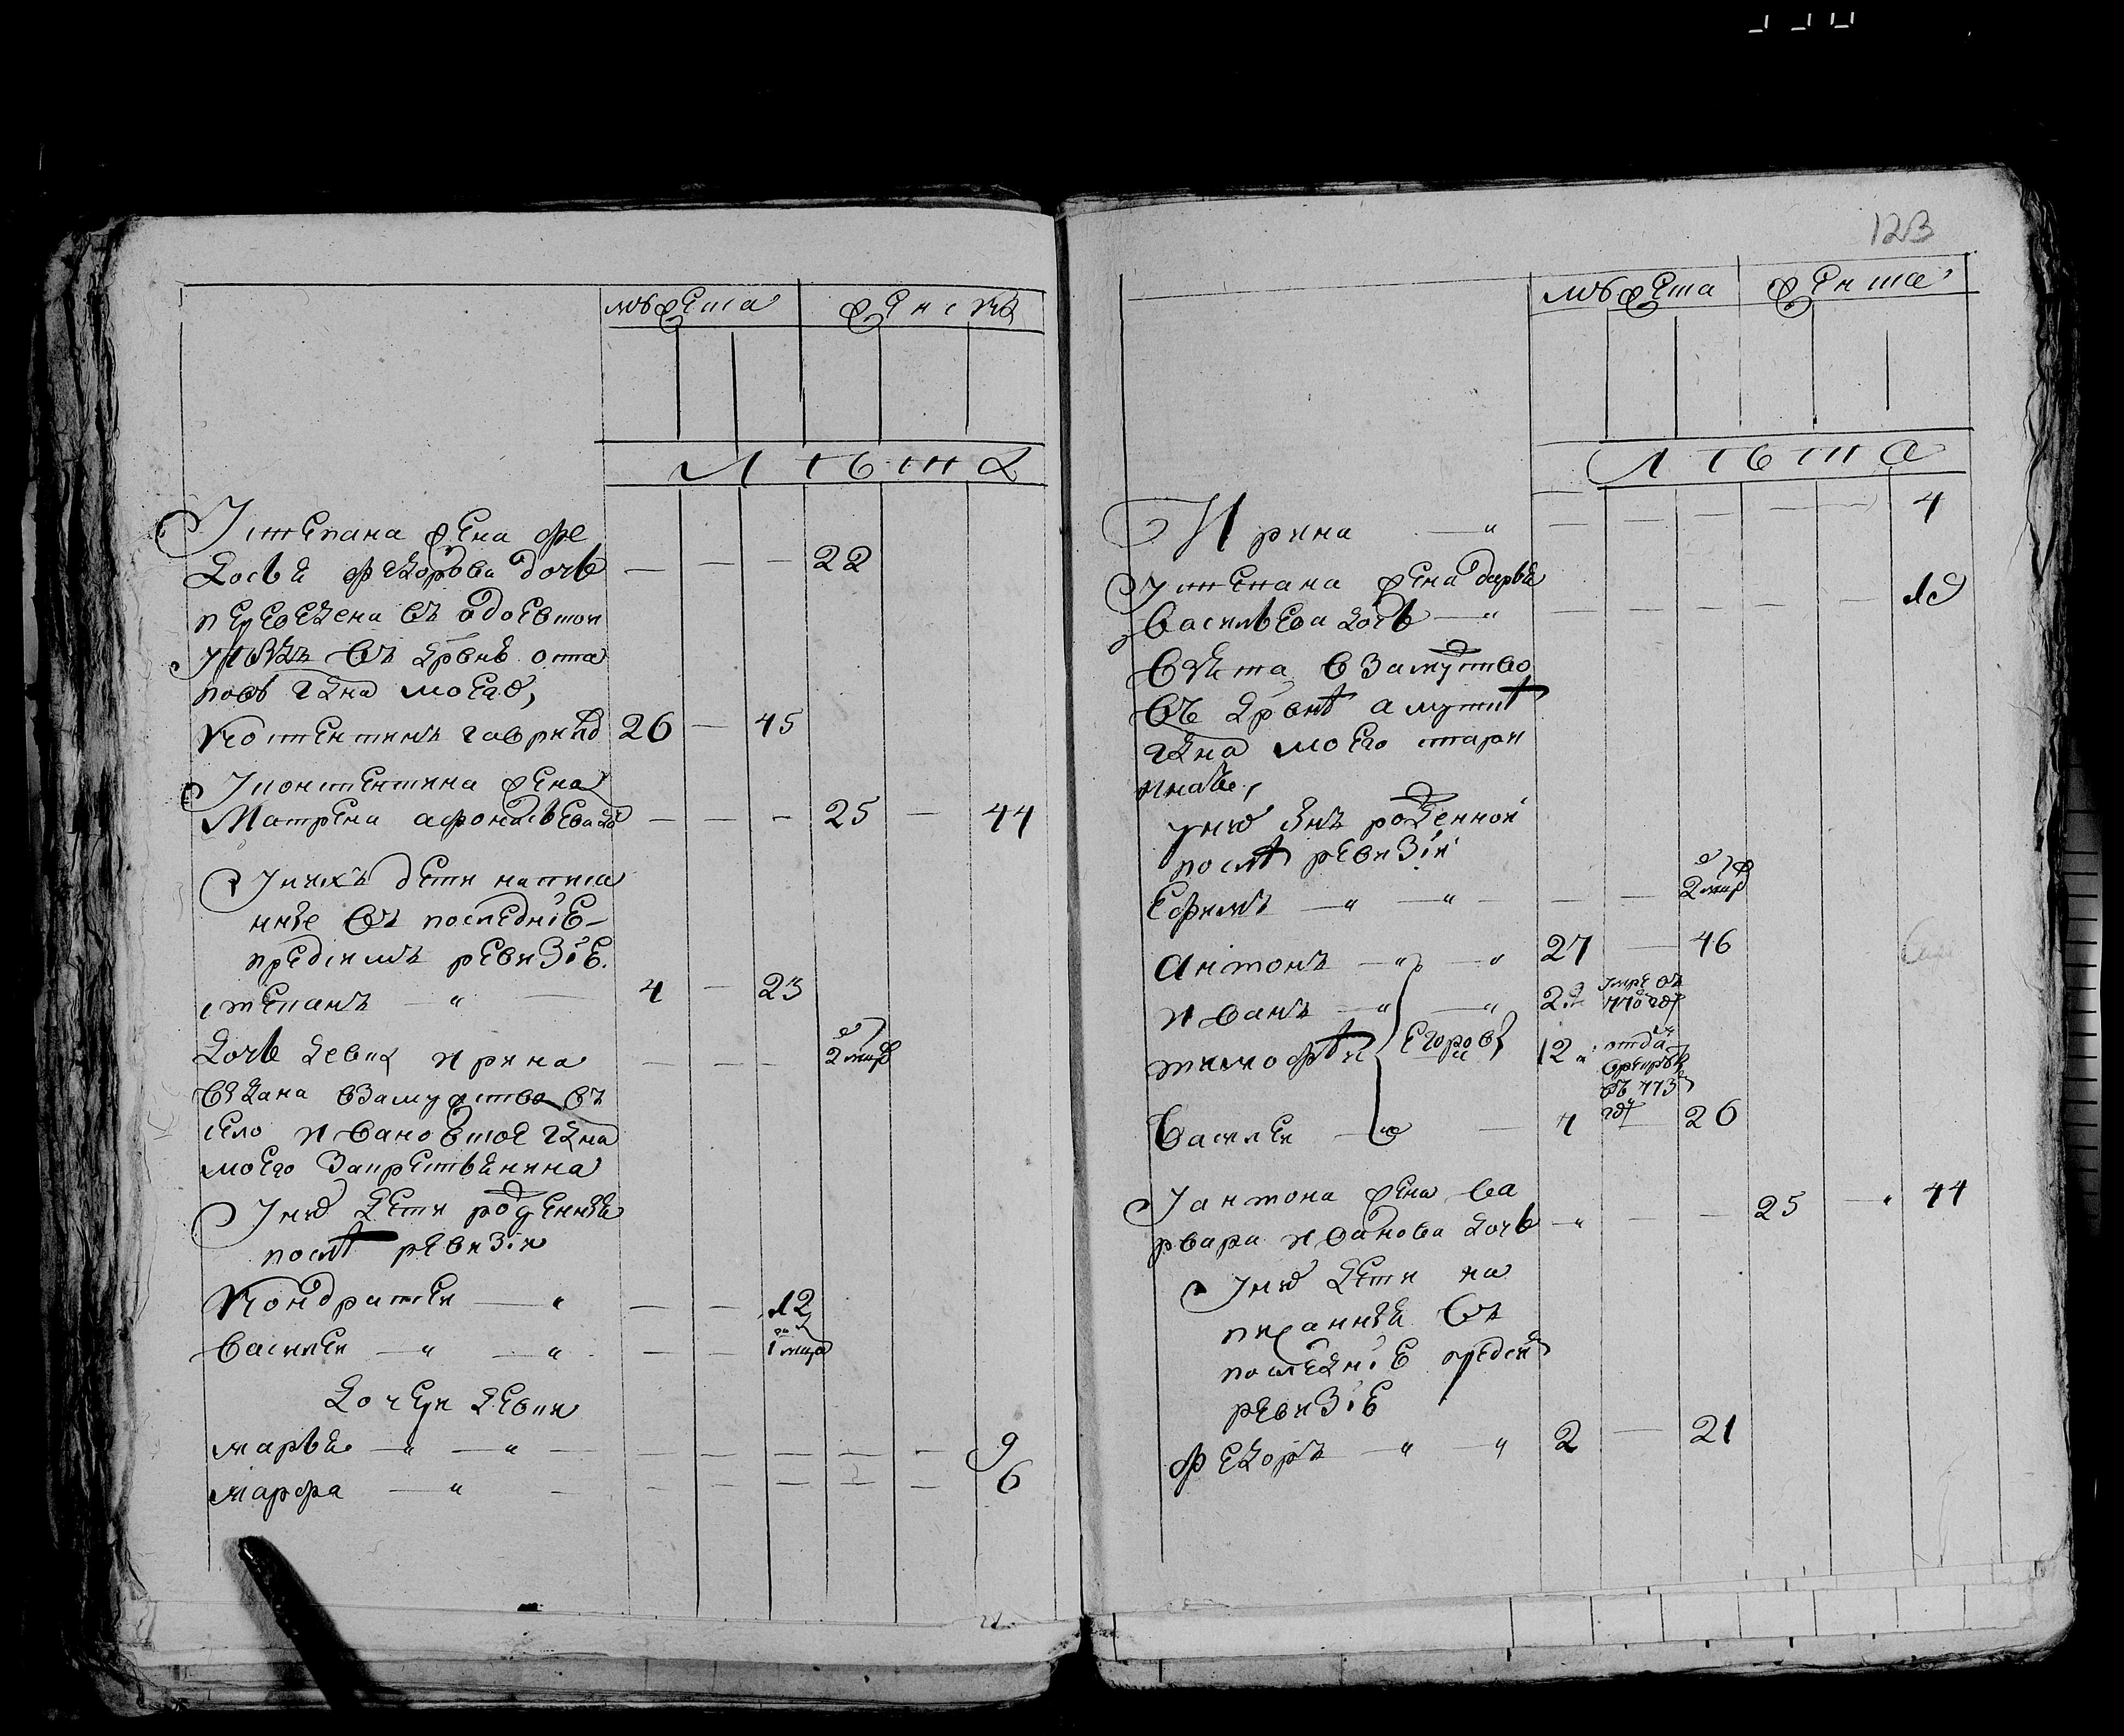 мужеска женска
Лѣта
У степана жена фе
досья федорова дочь — — — 22
переведена въ одоевской
уѣздъ въ дрвню
гдна моего,
костентинъ гаврилов 26 — 45
У костентина жена
Матрена афонасьева до — — — 25 — 44
У нихъ дети написа
нные въ последнее
пред симъ ревизiе.
степанъ " — 4 — 23
дочь девка ирина — — — 2 мцо
выдана взамужство въ
село ивановское гдна
моего
У них дети рожденныя
после ревизiи
Кондратей — " — — 12
василей — " — " — — 1 мцо
дочери девки
марья — " — " — — — — — — 9
марфа — " — — — — — — 6
123
мужеска женска
Лѣта
Ирина — " — — — — — 4
У степана жена дарья
васильева дочь — " — — — — — 19
взета взамужство
въ дрвне
гдна моего стари
ннаѧ,
у них сынъ рожденной
после ревизiи
Ефимъ — " — " — — — 2 мцо
антонъ — " — " 27 — 46
иванъ — " — " умре въ
тимофей Егоровы 12 отдан
в рекруты
въ 773
году
василей — " — 7 — 26
У антона жена ва
рвара иванова дочь — " — — 25 — " 44
У них дети на
писанныя въ
последнiе пред сей
ревизiе
федоръ — " — " 2 — 21